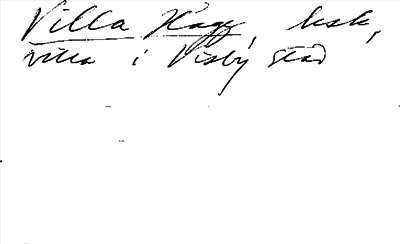 Villa Hage, besk,
villa i Visby stad